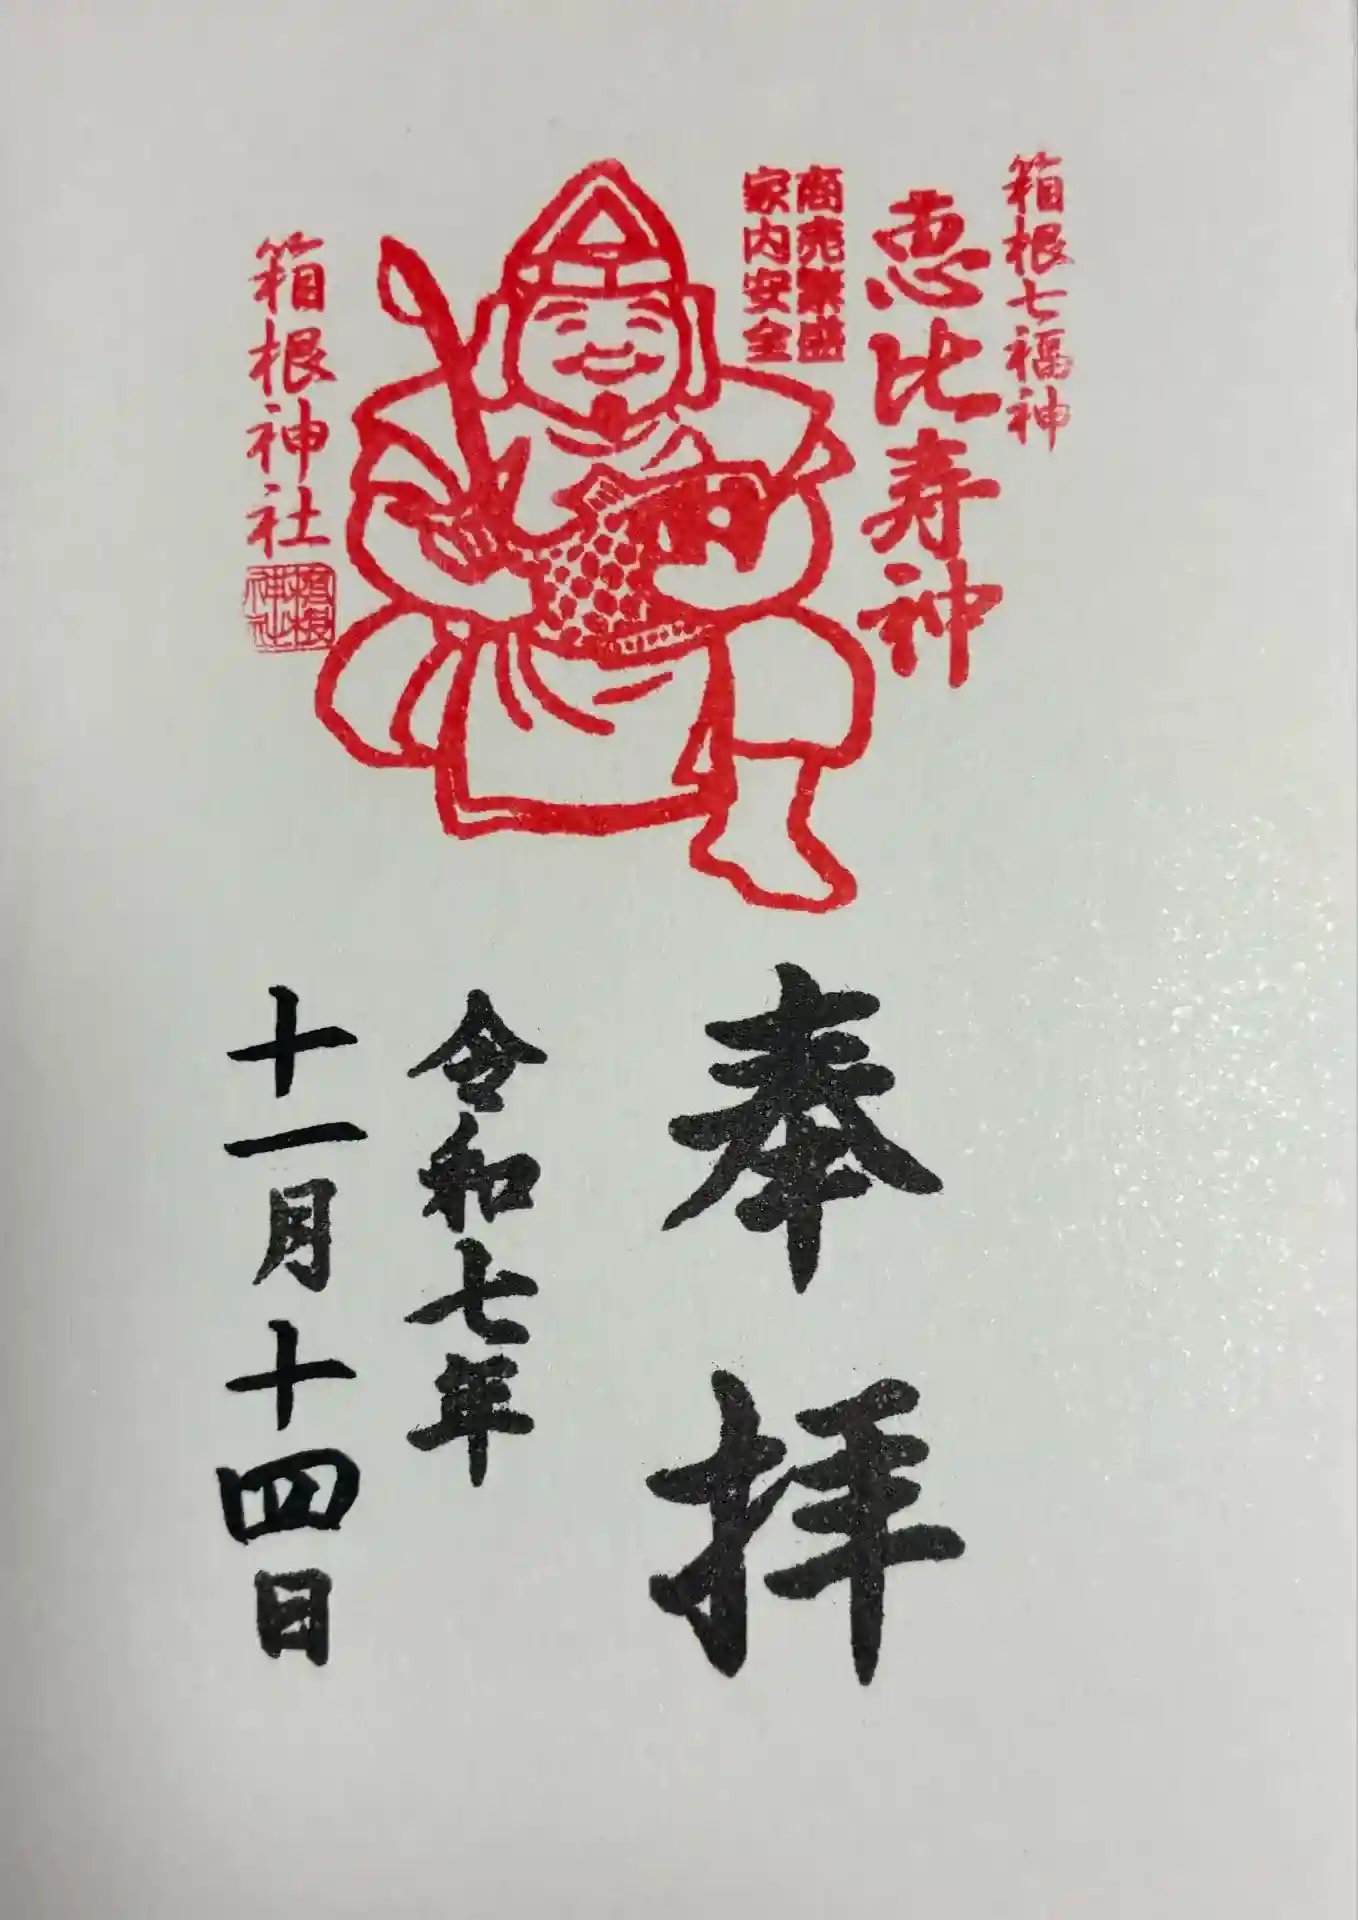 箱根七福神
恵比寿神
商売繁盛
家内安全
箱根神社
箱根
神社
奉拝
令和七年
十一月十四日